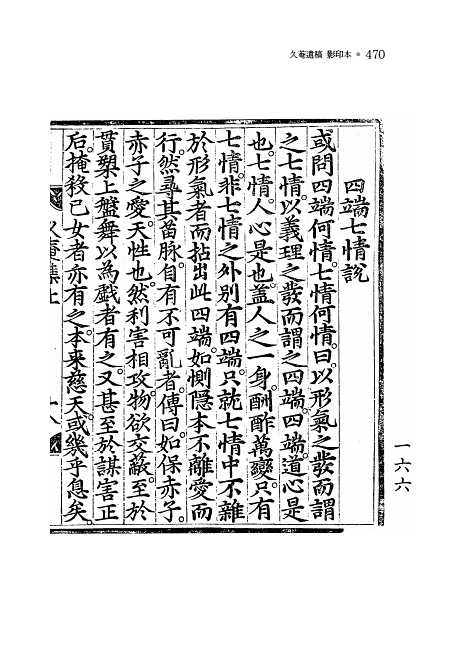 久菴遺稿 影印本 ● 470
四端七情說
或問四端何情。七情何情。曰。以形氣之發而謂
之七情。以義理之發而謂之四端。四端。道心是
也。七情。人心是也。盖人之一身。酬酢萬變。只有
七情。非七情之外別有四端。只就七情中不雜
於形氣者而拈出此四端。如惻隱本不離愛而
行。然尋其苗脉。自有不可亂者。傳曰。如保赤子。
赤子之愛。天性也。然利害相攻。物欲交蔽。至於
貫槊上盤舞以為戱者有之。又甚至於謀害正
后。掩殺已女者亦有之。本來慈天。或幾乎息矣。
久菴集上
十八
一六六